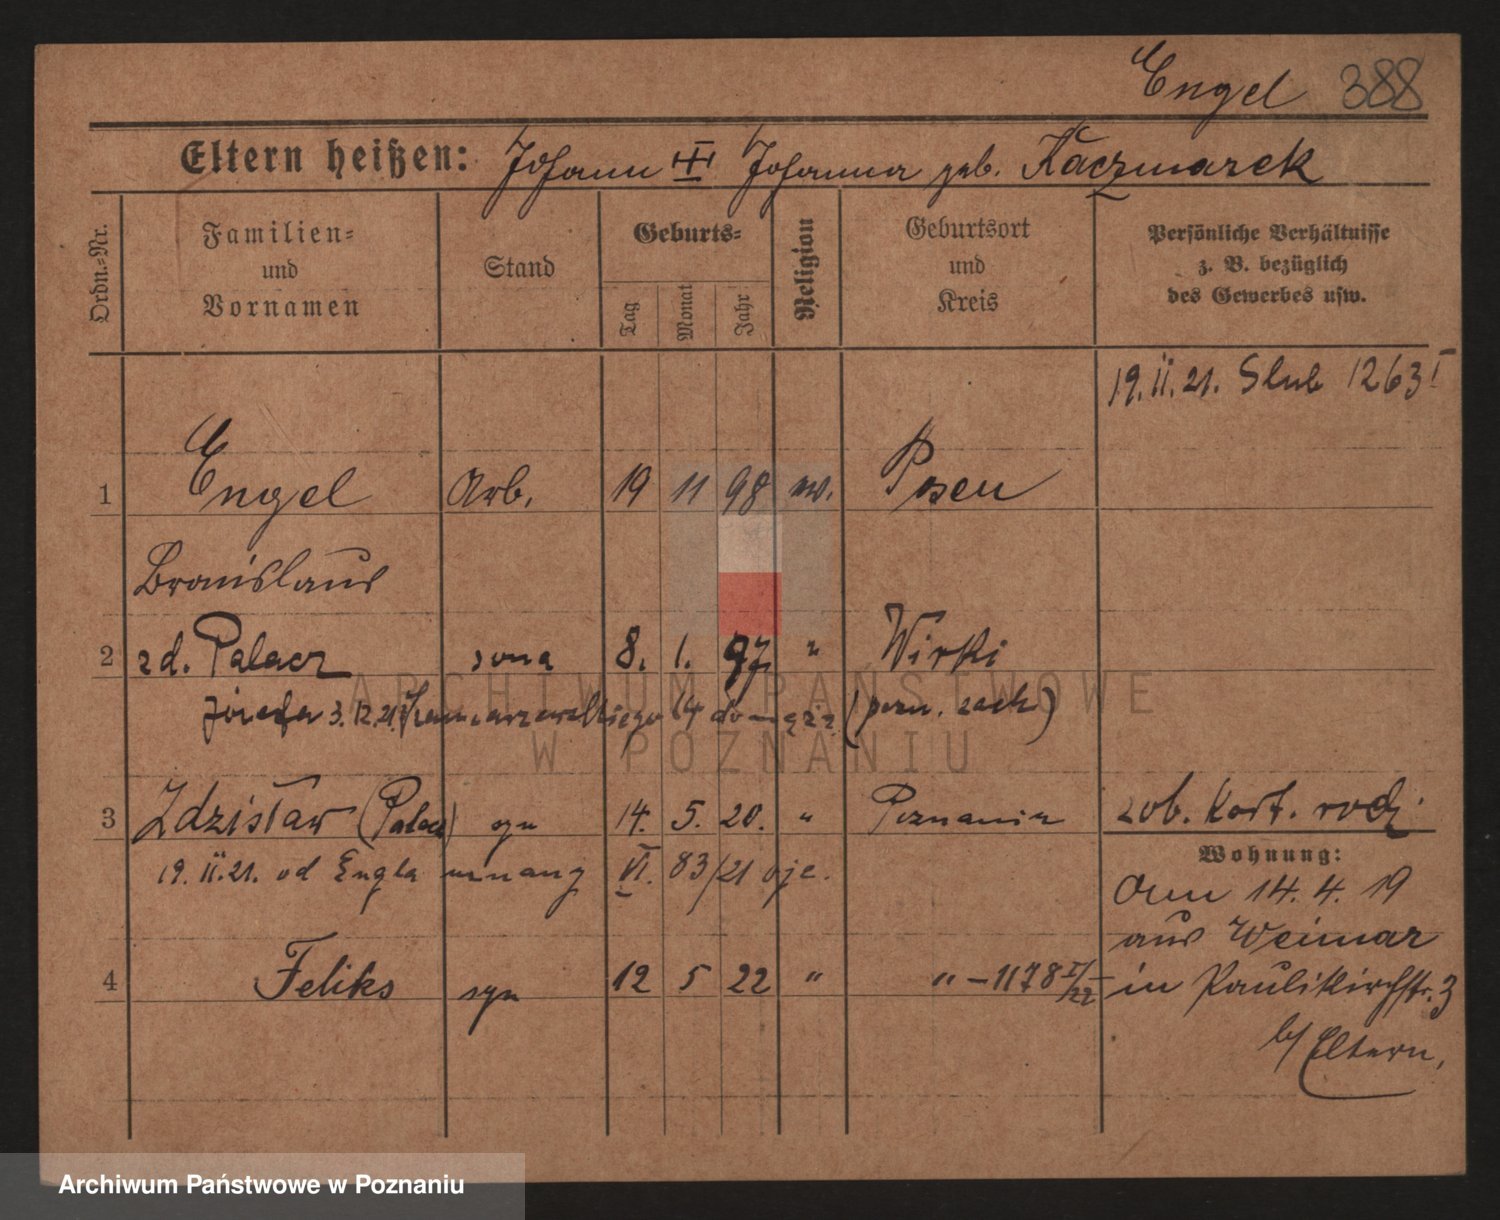 Engel 388
Eltern heißen: Johann Johanna geb. Kaczmarek
Ordn.-Nr.
Familien-
und
Vornamen
Stand
Geburts-
Tag
Monat
Jahr
Religion
Geburtsort
und
Kreis
Persönliche Verhältnisse
z. B. bezüglich
des Gewerbes usw.
19.II.21. Slub 1263 I
1 Engel Arb. 19 11 98 Posen
Bronislaus
2 zd. Palacz żona 8. 1. 97 " Wirki
Józefa 3.12.21. 14 do męża (pozn. zach)
3 Zdzisław (Palacz) syn 14. 5. 20. " Poznaniu zob. Kart. rodz.
19.II.21. od Engla uznany VI. 83/21 ojc.
Wohnung:
Am 14. 4. 19
aus Weimar
4 Feliks syn 12 5 22 " " - 1178 I/22 in Paulikirchstr. 3
b/ Eltern,
ARCHIWUM PAŃSTWOWE
W POZNANIU
Archiwum Państwowe w Poznaniu